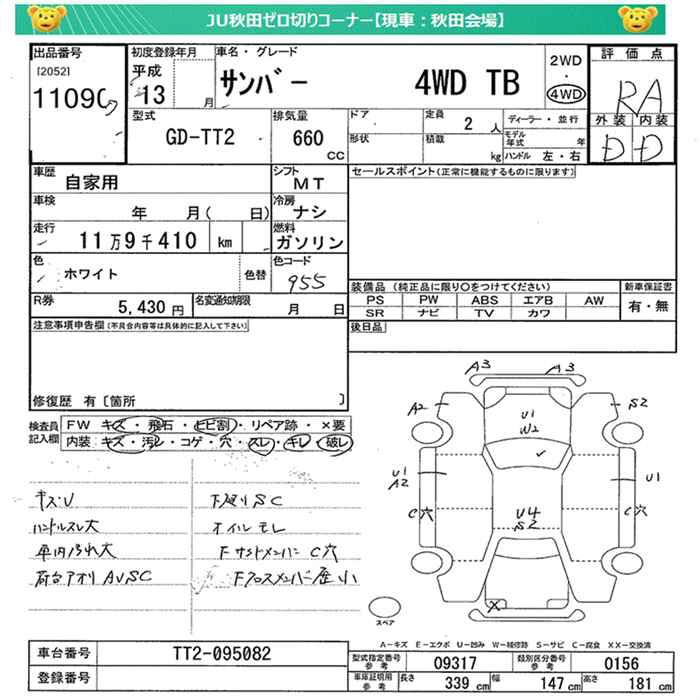 JU秋田ゼロ切りコーナー【現車：秋田会場】
出品番号 初度登録年月 車名・グレード 2WD 評価点
[2052] 平成 サンバー 4WD TB ・
13 月 4WD RA
型式 排気量 ドア 定員 2 人 ディーラー・並行 外装 内装
GD-TT2 660 cc 形状 積載 kg モデル年式 年 D D
ハンドル 左・右
車歴 自家用 シフト MT セールスポイント(正常に機能するものに限ります)
車検 年 月( 日) 冷房 ナシ
走行 11万9千410 km 燃料 ガソリン
色 ホワイト 色替 色コード 955
装備品 (純正品に限り○をつけてください) 新車保証書
PS PW ABS エアB AW 有・無
SR ナビ TV カワ
R券 5,430円 名変通知期限 月 日
後日品
注意事項申告欄 (不具合内容等は具体的に記入して下さい)
修復歴 有 [箇所 ]
検査員記入欄 FW キズ・飛石・ヒビ割・リペア跡・×要
内装:キズ・汚レ・コゲ・穴・スレ・キレ・破レ
キズU 下廻りSC
ハンドルスレ大 オイルモレ
車内汚れ大 Fサイドメンバー C穴
荷台アオリ AUSC Fクロスメンバー 小
A3 A3
A2 S2
U1
W2
U1 U1
A2
C穴 U4 C穴
S2
X
スペア
A－キズ E－エクボ U－凹み W－補修跡 S－サビ C－腐食 XX－交換済
車台番号 TT2-095082
型式指定番号 参考 09317 類別区分番号 参考 0156
登録番号
車庫証明用 参考 長さ 339 cm 幅 147 cm 高さ 181 cm